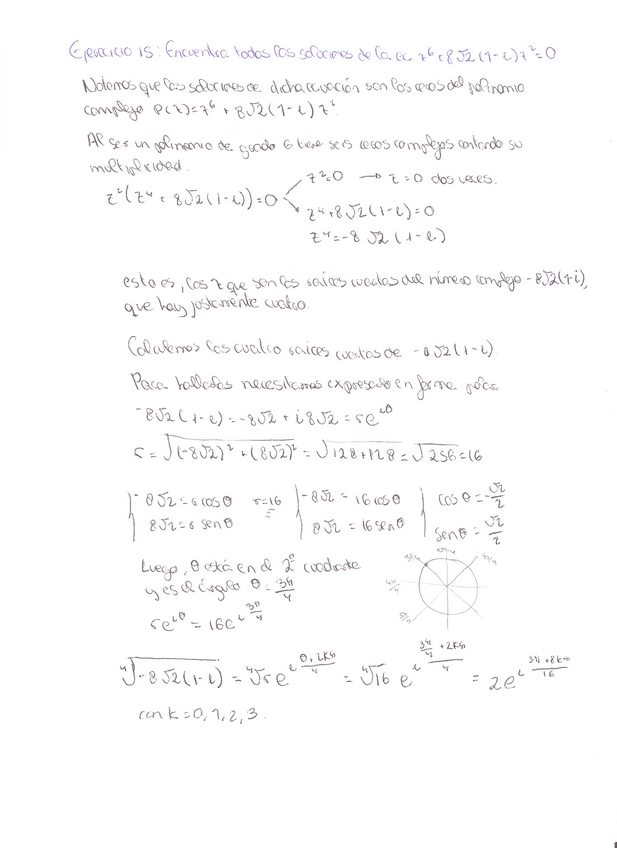 Ejercicio 15: Encuentra todas las soluciones de la ec z⁶+8√2(1-i)z²=0
Notemos que las soluciones de dicha ecuación son los ceros del polinomio
complejo P(z)=z⁶+8√2(1-i)z².
Al ser un polinomio de grado 6 tiene seis ceros complejos contando su
multiplicidad.
z²=0 → z=0 dos veces.
z²(z⁴+8√2(1-i))=0
z⁴+8√2(1-i)=0
z⁴=-8√2(1-i)
esto es, los z que son las raíces cuartas del número complejo -8√2(1-i),
que hay justamente cuatro.
Calculemos las cuatro raíces cuartas de -8√2(1-i)
Para hallarlas necesitamos expresarlo en forma polar
-8√2(1-i)=-8√2+i8√2=re^(iθ)
r=√((-8√2)²+(8√2)²)=√(128+128)=√256=16
-8√2=r cosθ r=16 -8√2=16cosθ cosθ=-√2/2
8√2=r senθ 8√2=16senθ senθ=√2/2
Luego, θ está en el 2º cuadrante
y es el ángulo θ=3π/4
re^(iθ)=16e^(i3π/4)
⁴√(-8√2(1-i))=⁴√r e^(i(θ+2kπ)/4)=⁴√16 e^(i(3π/4+2kπ)/4)=2e^(i(3π+8kπ)/16)
con k=0,1,2,3.